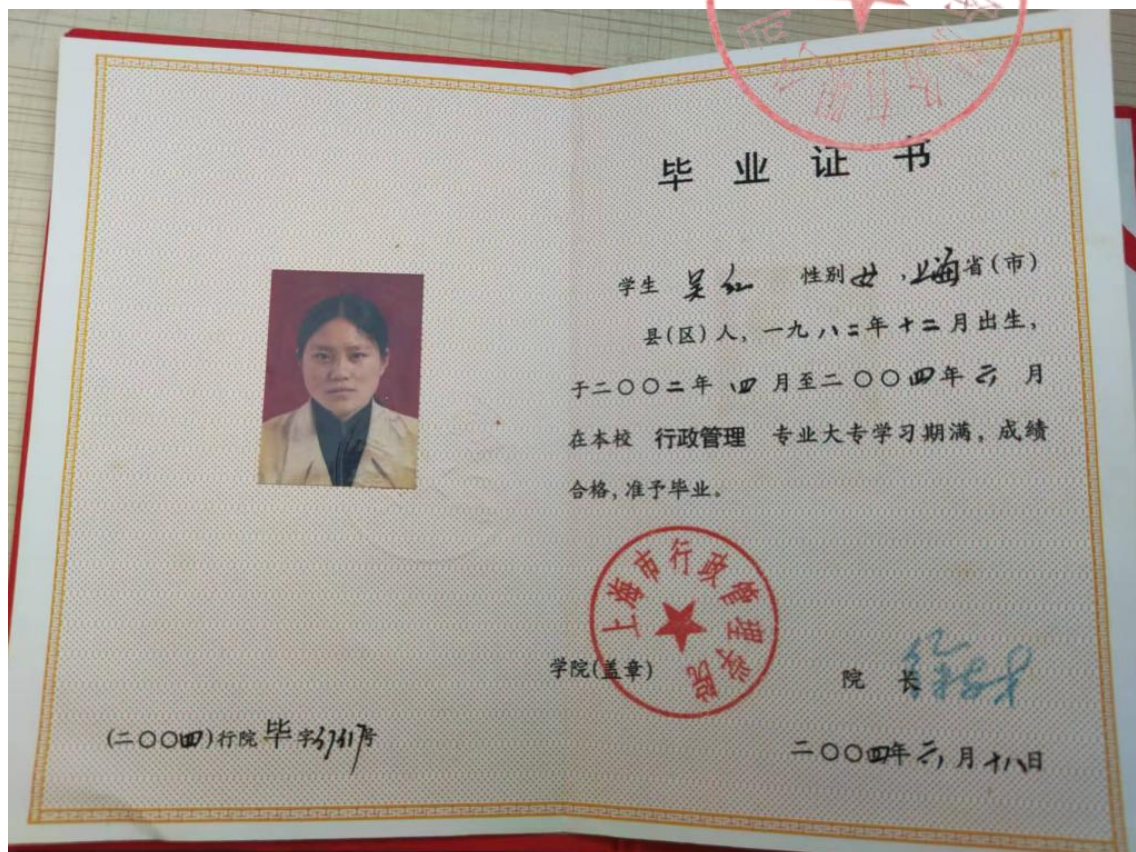 毕业证书
学生 吴红 性别 女，上海省(市)
县(区)人，一九八二年十二月出生，
于二〇〇二年 四 月至二〇〇四年 六 月
在本校 行政管理 专业大专学习期满，成绩
合格，准予毕业。
上海市行政管理学院
学院(盖章)
院 长
(二〇〇四)行院 毕 字 号
二〇〇四年 六 月十八日